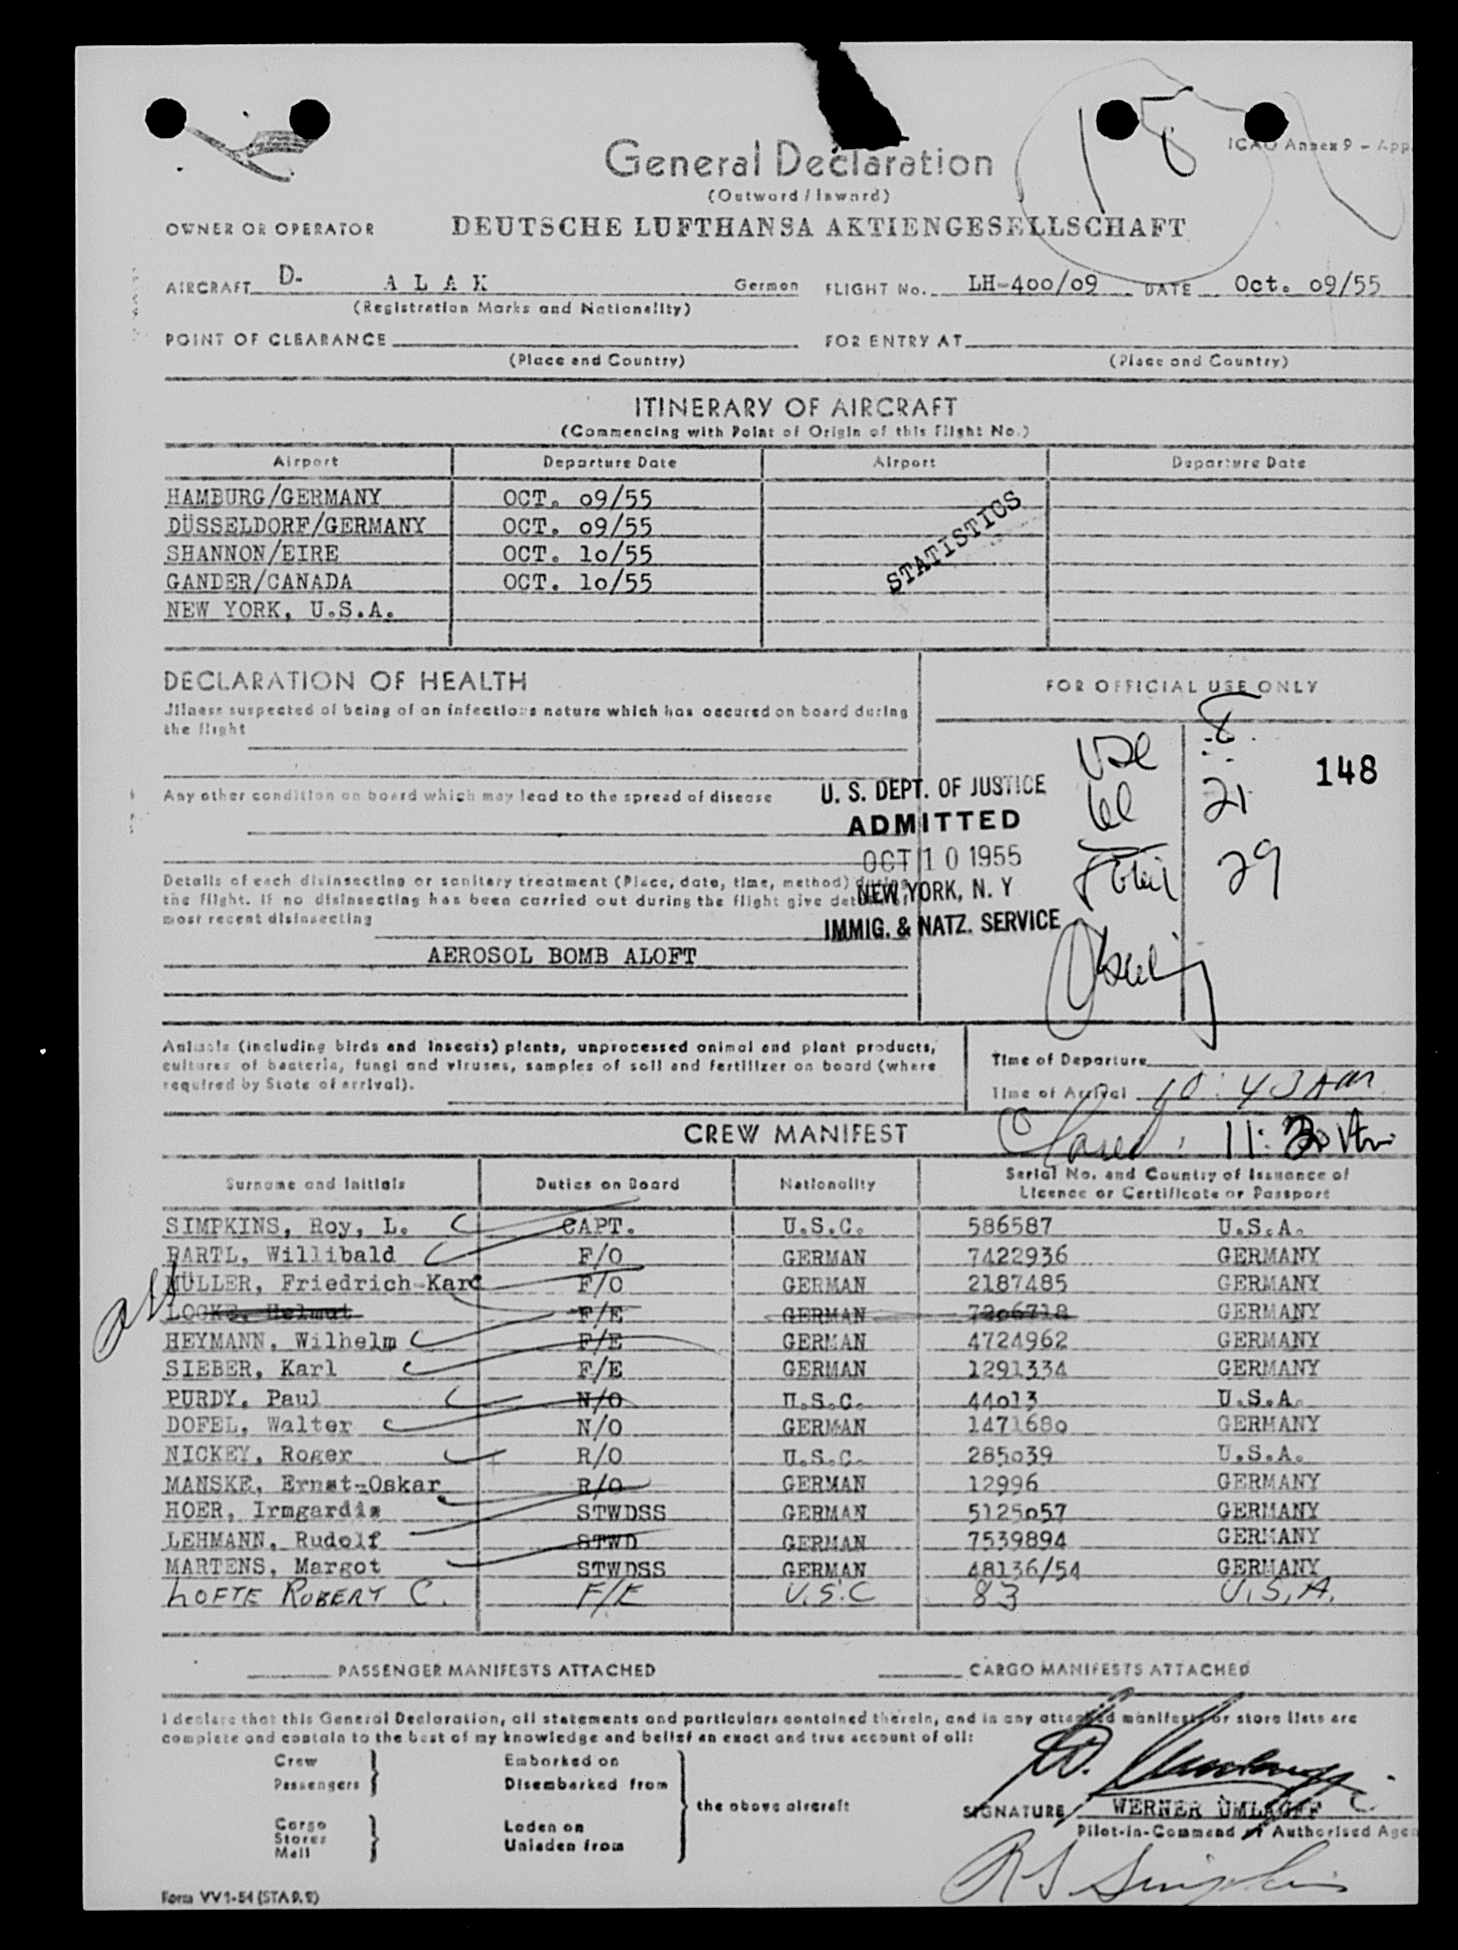 ICAO Annex 9 - App.
18
General Declaration
(Outward / Inward)
OWNER OR OPERATOR DEUTSCHE LUFTHANSA AKTIENGESELLSCHAFT
AIRCRAFT D- ALAK German FLIGHT No. LH-400/09 DATE Oct. 09/55
(Registration Marks and Nationality)
POINT OF CLEARANCE FOR ENTRY AT
(Place and Country) (Place and Country)
ITINERARY OF AIRCRAFT
(Commencing with Point of Origin of this Flight No.)
Airport Departure Date Airport Departure Date
HAMBURG/GERMANY OCT. 09/55
DÜSSELDORF/GERMANY OCT. 09/55
SHANNON/EIRE OCT. 10/55
GANDER/CANADA OCT. 10/55
NEW YORK, U.S.A.
STATISTICS
DECLARATION OF HEALTH
Illness suspected of being of an infectious nature which has occured on board during
the flight
Any other condition on board which may lead to the spread of disease
Details of each disinsecting or sanitary treatment (Place, date, time, method) during
the flight. If no disinsecting has been carried out during the flight give details of
most recent disinsecting
AEROSOL BOMB ALOFT
FOR OFFICIAL USE ONLY
USC 8
21
Total 29
148
U. S. DEPT. OF JUSTICE
ADMITTED
OCT 10 1955
NEW YORK, N. Y
IMMIG. & NATZ. SERVICE
Animals (including birds and insects) plants, unprocessed animal and plant products,
cultures of bacteria, fungi and viruses, samples of soil and fertilizer on board (where
required by State of arrival).
Time of Departure
Time of Arrival 10:43 AM
Closed: 11:30 AM
CREW MANIFEST
Surname and Initials Duties on Board Nationality Serial No. and Country of Issuance of
Licence or Certificate or Passport
SIMPKINS, Roy, L. CAPT. U.S.C. 586587 U.S.A.
BARTL, Willibald F/O GERMAN 7422936 GERMANY
MÜLLER, Friedrich-Karl F/O GERMAN 2187485 GERMANY
LOCKE, Helmut F/E GERMAN 7206718 GERMANY
HEYMANN, Wilhelm F/E GERMAN 4724962 GERMANY
SIEBER, Karl F/E GERMAN 1291334 GERMANY
PURDY, Paul N/O U.S.C. 44013 U.S.A.
DOFEL, Walter N/O GERMAN 1471680 GERMANY
NICKEY, Roger R/O U.S.C. 285039 U.S.A.
MANSKE, Ernst-Oskar R/O GERMAN 12996 GERMANY
HOER, Irmgardis STWDSS GERMAN 5125057 GERMANY
LEHMANN, Rudolf STWD GERMAN 7539894 GERMANY
MARTENS, Margot STWDSS GERMAN 48136/54 GERMANY
LOFTE ROBERT C. F/E U.S.C 83 U.S.A.
PASSENGER MANIFESTS ATTACHED CARGO MANIFESTS ATTACHED
I declare that this General Declaration, all statements and particulars contained therein, and in any attached manifests or store lists are
complete and contain to the best of my knowledge and belief an exact and true account of all:
Crew
Passengers
Embarked on
Disembarked from
Cargo
Stores
Mail
Laden on
Unladen from
the above aircraft
SIGNATURE WERNER UMLAUFF
Pilot-in-Command or Authorised Agen
R L Simpkins
Form VV 1-54 (STA P. 9)